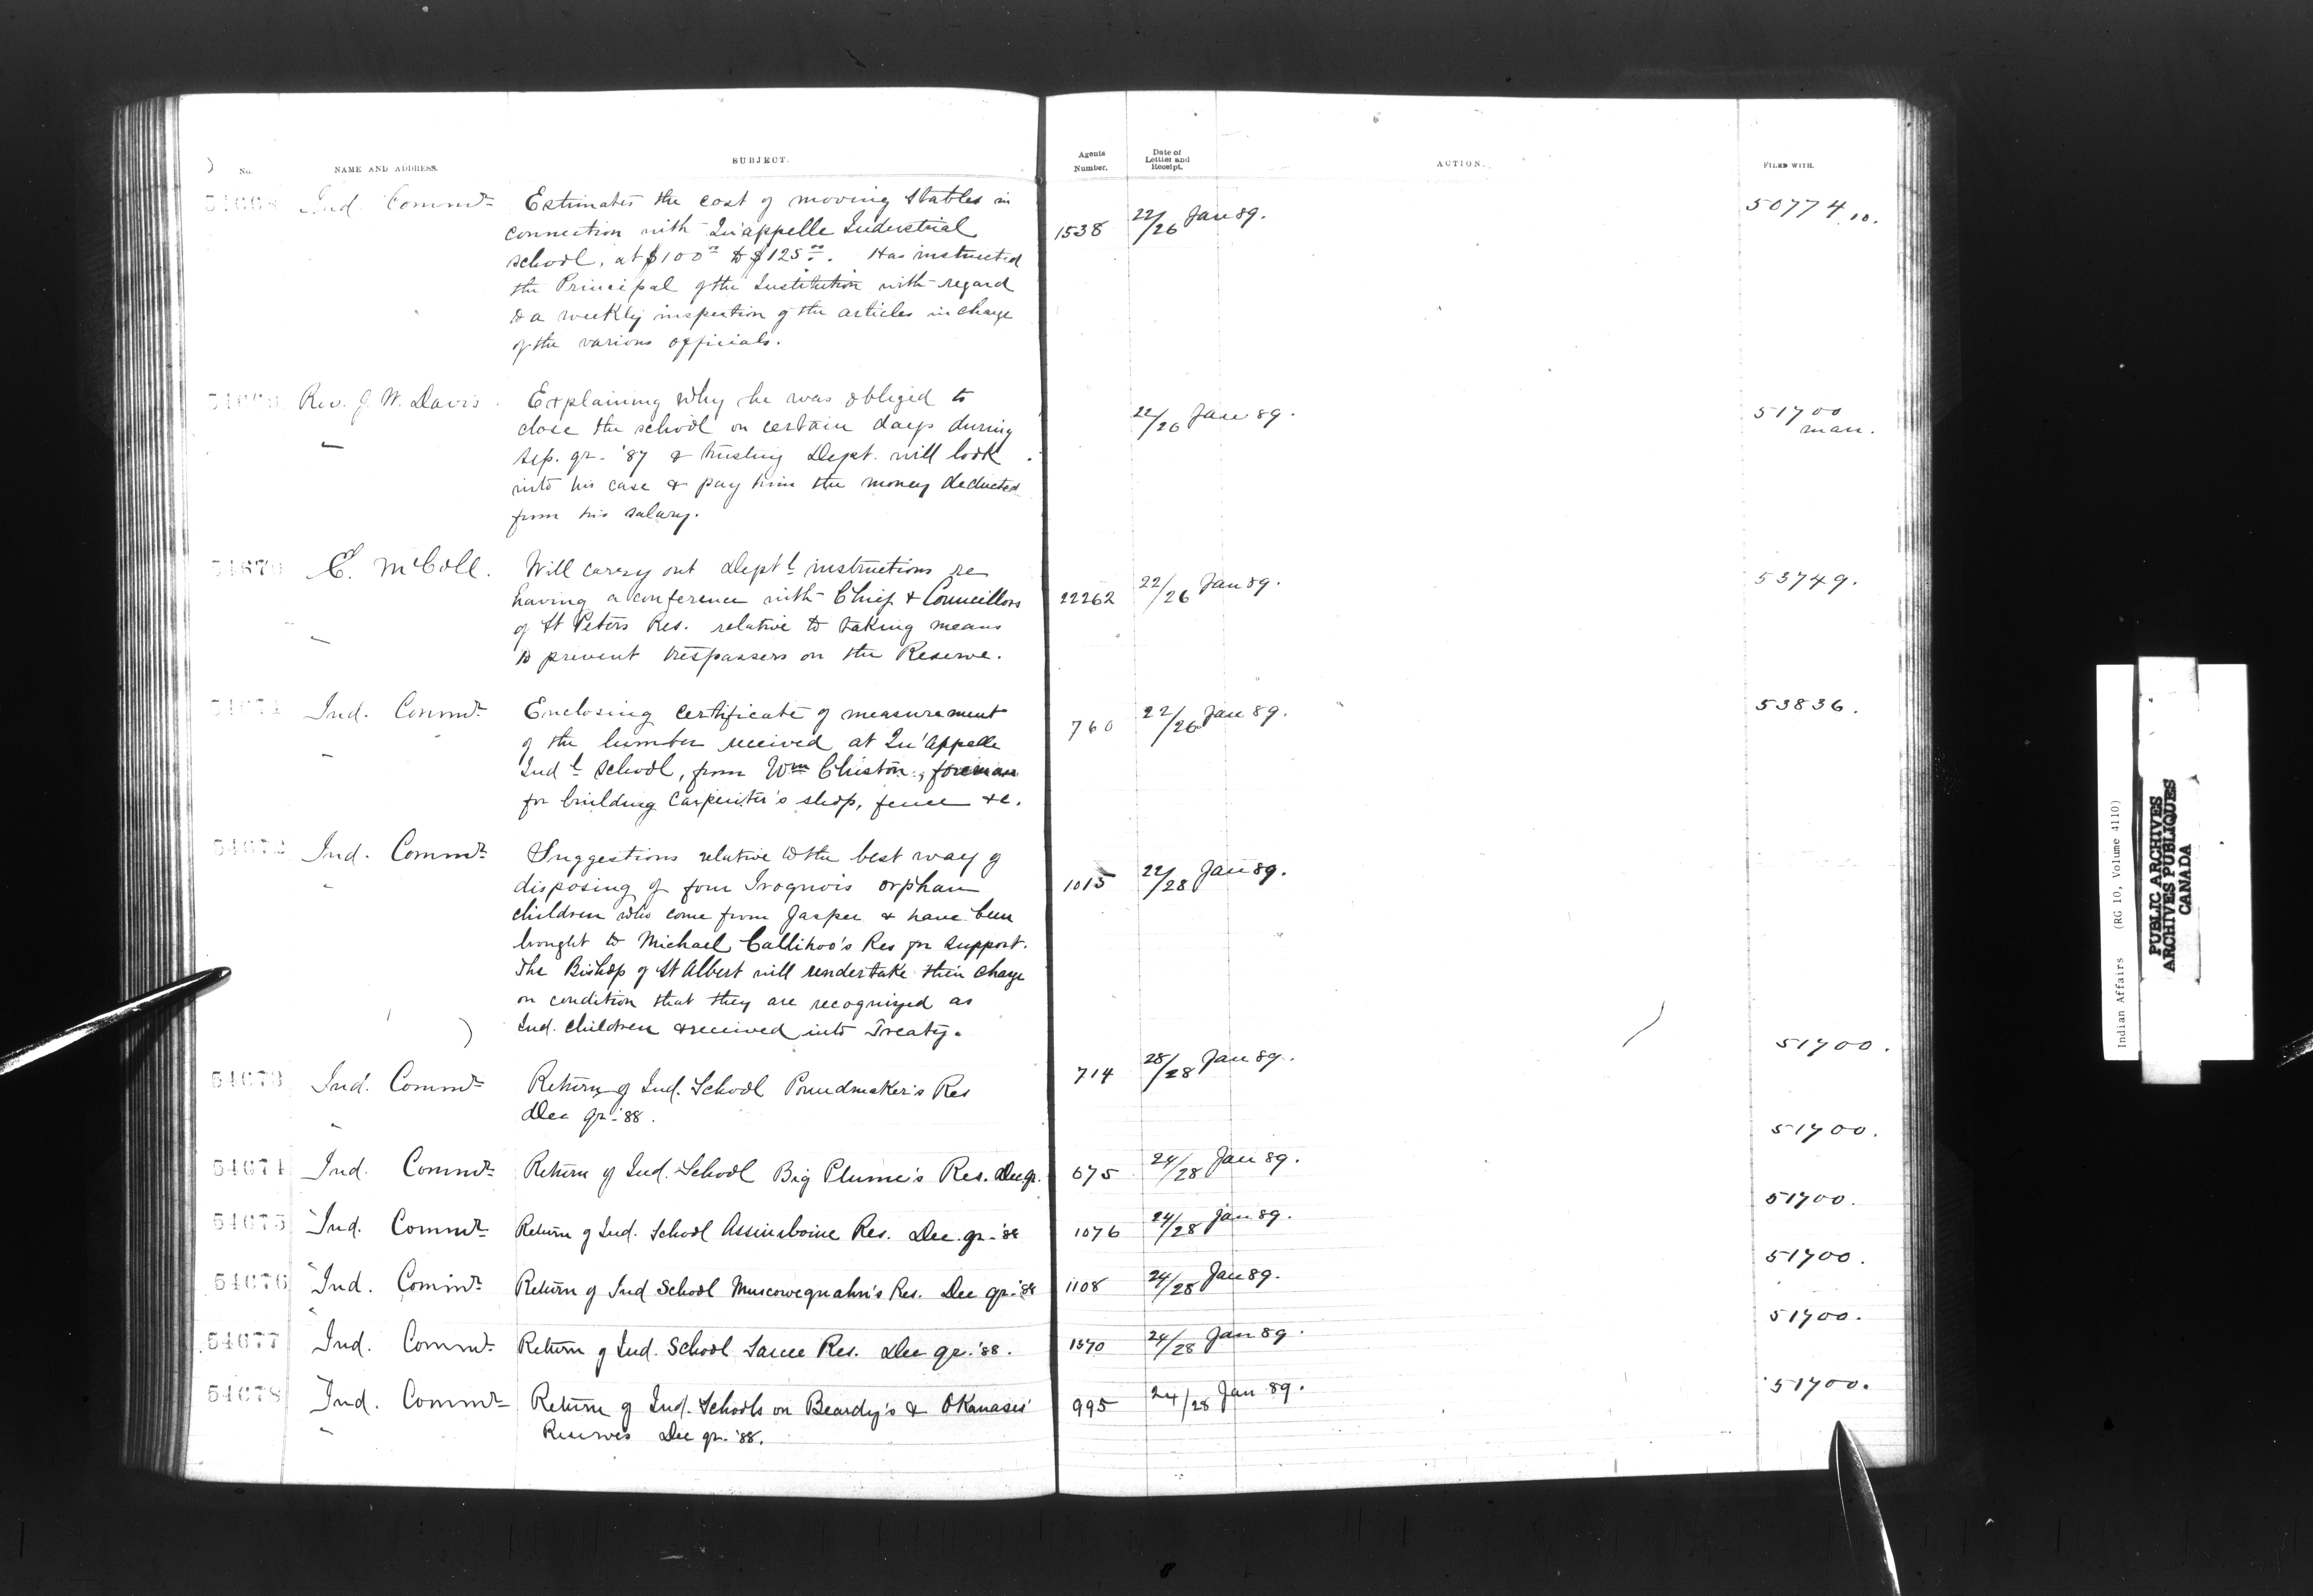 No. NAME AND ADDRESS. SUBJECT. Agents Number. Date of Letter and Receipt. ACTION. FILED WITH.
54668 Ind. Commr Estimates the cost of moving Stables in
connection with Qu'appelle Industrial
school, at $100 00 to $125 00. Has instructed
the Principal of the Institution with regard
to a weekly inspection of the articles in charge
of the various officials.
1538 22/26 Jan 89. 50774.10.
Rev. J. W. Davis. Explaining why he was obliged to
close the school on certain days during
Sep. qr. '87 & trusting Dept. will look
into his case & pay him the money deducted
from his salary.
22/26 Jan 89. 51700
man.
54670 E. McColl. Will carry out Dept'l instructions re
having a conference with Chief & Councillors
of St Peters Res. relative to taking means
to prevent trespassers on the Reserve.
22262 22/26 Jan 89. 53749.
54671 Ind. Commr Enclosing certificate of measurement
of the lumber received at Qu'Appelle
Ind'l School, from Wm Chiston, foreman
for building Carpenter's shop, fence &c.
760 22/26 Jan 89. 53836.
54672 Ind. Commr Suggestions relative to the best way of
disposing of four Iroquois orphan
children who come from Jasper & have been
brought to Michael Callihoo's Res for support.
The Bishop of St Albert will undertake their charge
on condition that they are recognized as
Ind. children & received into Treaty.
1015 22/28 Jan 89.
54673 Ind. Commr Return of Ind. School Poundmaker's Res
Dec qr. '88.
714 28/28 Jan 89. 51700.
54674 Ind. Commr Return of Ind. School Big Plume's Res. Dec qr.
675 24/28 Jan 89. 51700.
54675 Ind. Commr Return of Ind. School Assiniboine Res. Dec. qr. '88
1076 24/28 Jan 89. 51700.
54676 Ind. Commr Return of Ind School Muscowequahn's Res. Dec qr. '88
1108 24/28 Jan 89. 51700.
54677 Ind. Commr Return of Ind. School Sarcee Res. Dec qr. '88.
1370 24/28 Jan 89. 51700.
54678 Ind. Commr Return of Ind. Schools on Beardy's & Okanases'
Reserves Dec qr. '88.
995 24/28 Jan 89. 51700.
Indian Affairs (RG 10, Volume 4110)
PUBLIC ARCHIVES
ARCHIVES PUBLIQUES
CANADA